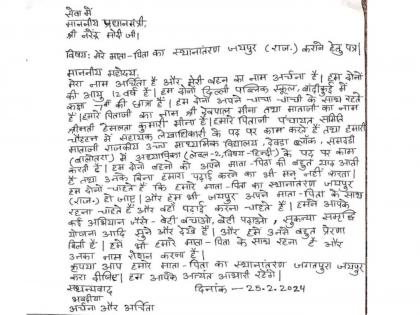 सेवा में
माननीय प्रधानमंत्री,
श्री नरेंद्र मोदी जी।
विषय: मेरे माता-पिता का स्थानांतरण जयपुर (राज.) कराने हेतु पत्र।
माननीय महोदय,
मेरा नाम अर्चिता है और मेरी बहन का नाम अर्चना है। हम दोनों
की आयु 12 वर्ष है। हम दोनों दिल्ली पब्लिक स्कूल, बांदीकुई में
कक्षा 7वीं की छात्रा हैं। हम दोनों अपने चाचा चाची के साथ रहते
हैं। हमारे पिताजी का नाम श्री देवपाल मीना तथा माताजी का नाम
श्रीमती हेमलता कुमारी मीना है। हमारे पिताजी पंचायत समिति
चौहटन में सहायक लेखाधिकारी के पद पर काम करते हैं तथा हमारी
माताजी राजकीय उच्च माध्यमिक विद्यालय, देवड़ा ब्लॉक, समदडी
(बालोतरा) में अध्यापिका (लेवल-2, विषय-हिन्दी) के पद पर काम
करती हैं। हम दोनों बहनों को अपने माता-पिता की बहुत याद आती
है तथा उनके बिना हमारा पढ़ाई करने का भी मन नहीं करता।
हम दोनों चाहते हैं कि हमारे माता-पिता का स्थानांतरण जयपुर
(राज.) हो जाए। और हम भी जयपुर अपने माता-पिता के साथ
रहना चाहते हैं और वही पढाई करना चाहते हैं। हमने आपके
कई अभियान जैसे- बेटी बचाओ, बेटी पढ़ाओ, सुकन्या समृद्धि
योजना आदि सुने और देखे हैं। और हमें उनसे बहुत प्रेरणा
मिली है। हमें भी हमारे माता-पिता के साथ रहना है और
उनका नाम रोशन करना है।
कृपया आप हमारे माता-पिता का स्थानांतरण जगतपुरा जयपुर
करा दीजिए। हम आपके अत्यंत आभारी रहेंगे।
सधन्यवाद दिनांक — 25.2.2024
भवदीया
अर्चना और अर्चिता